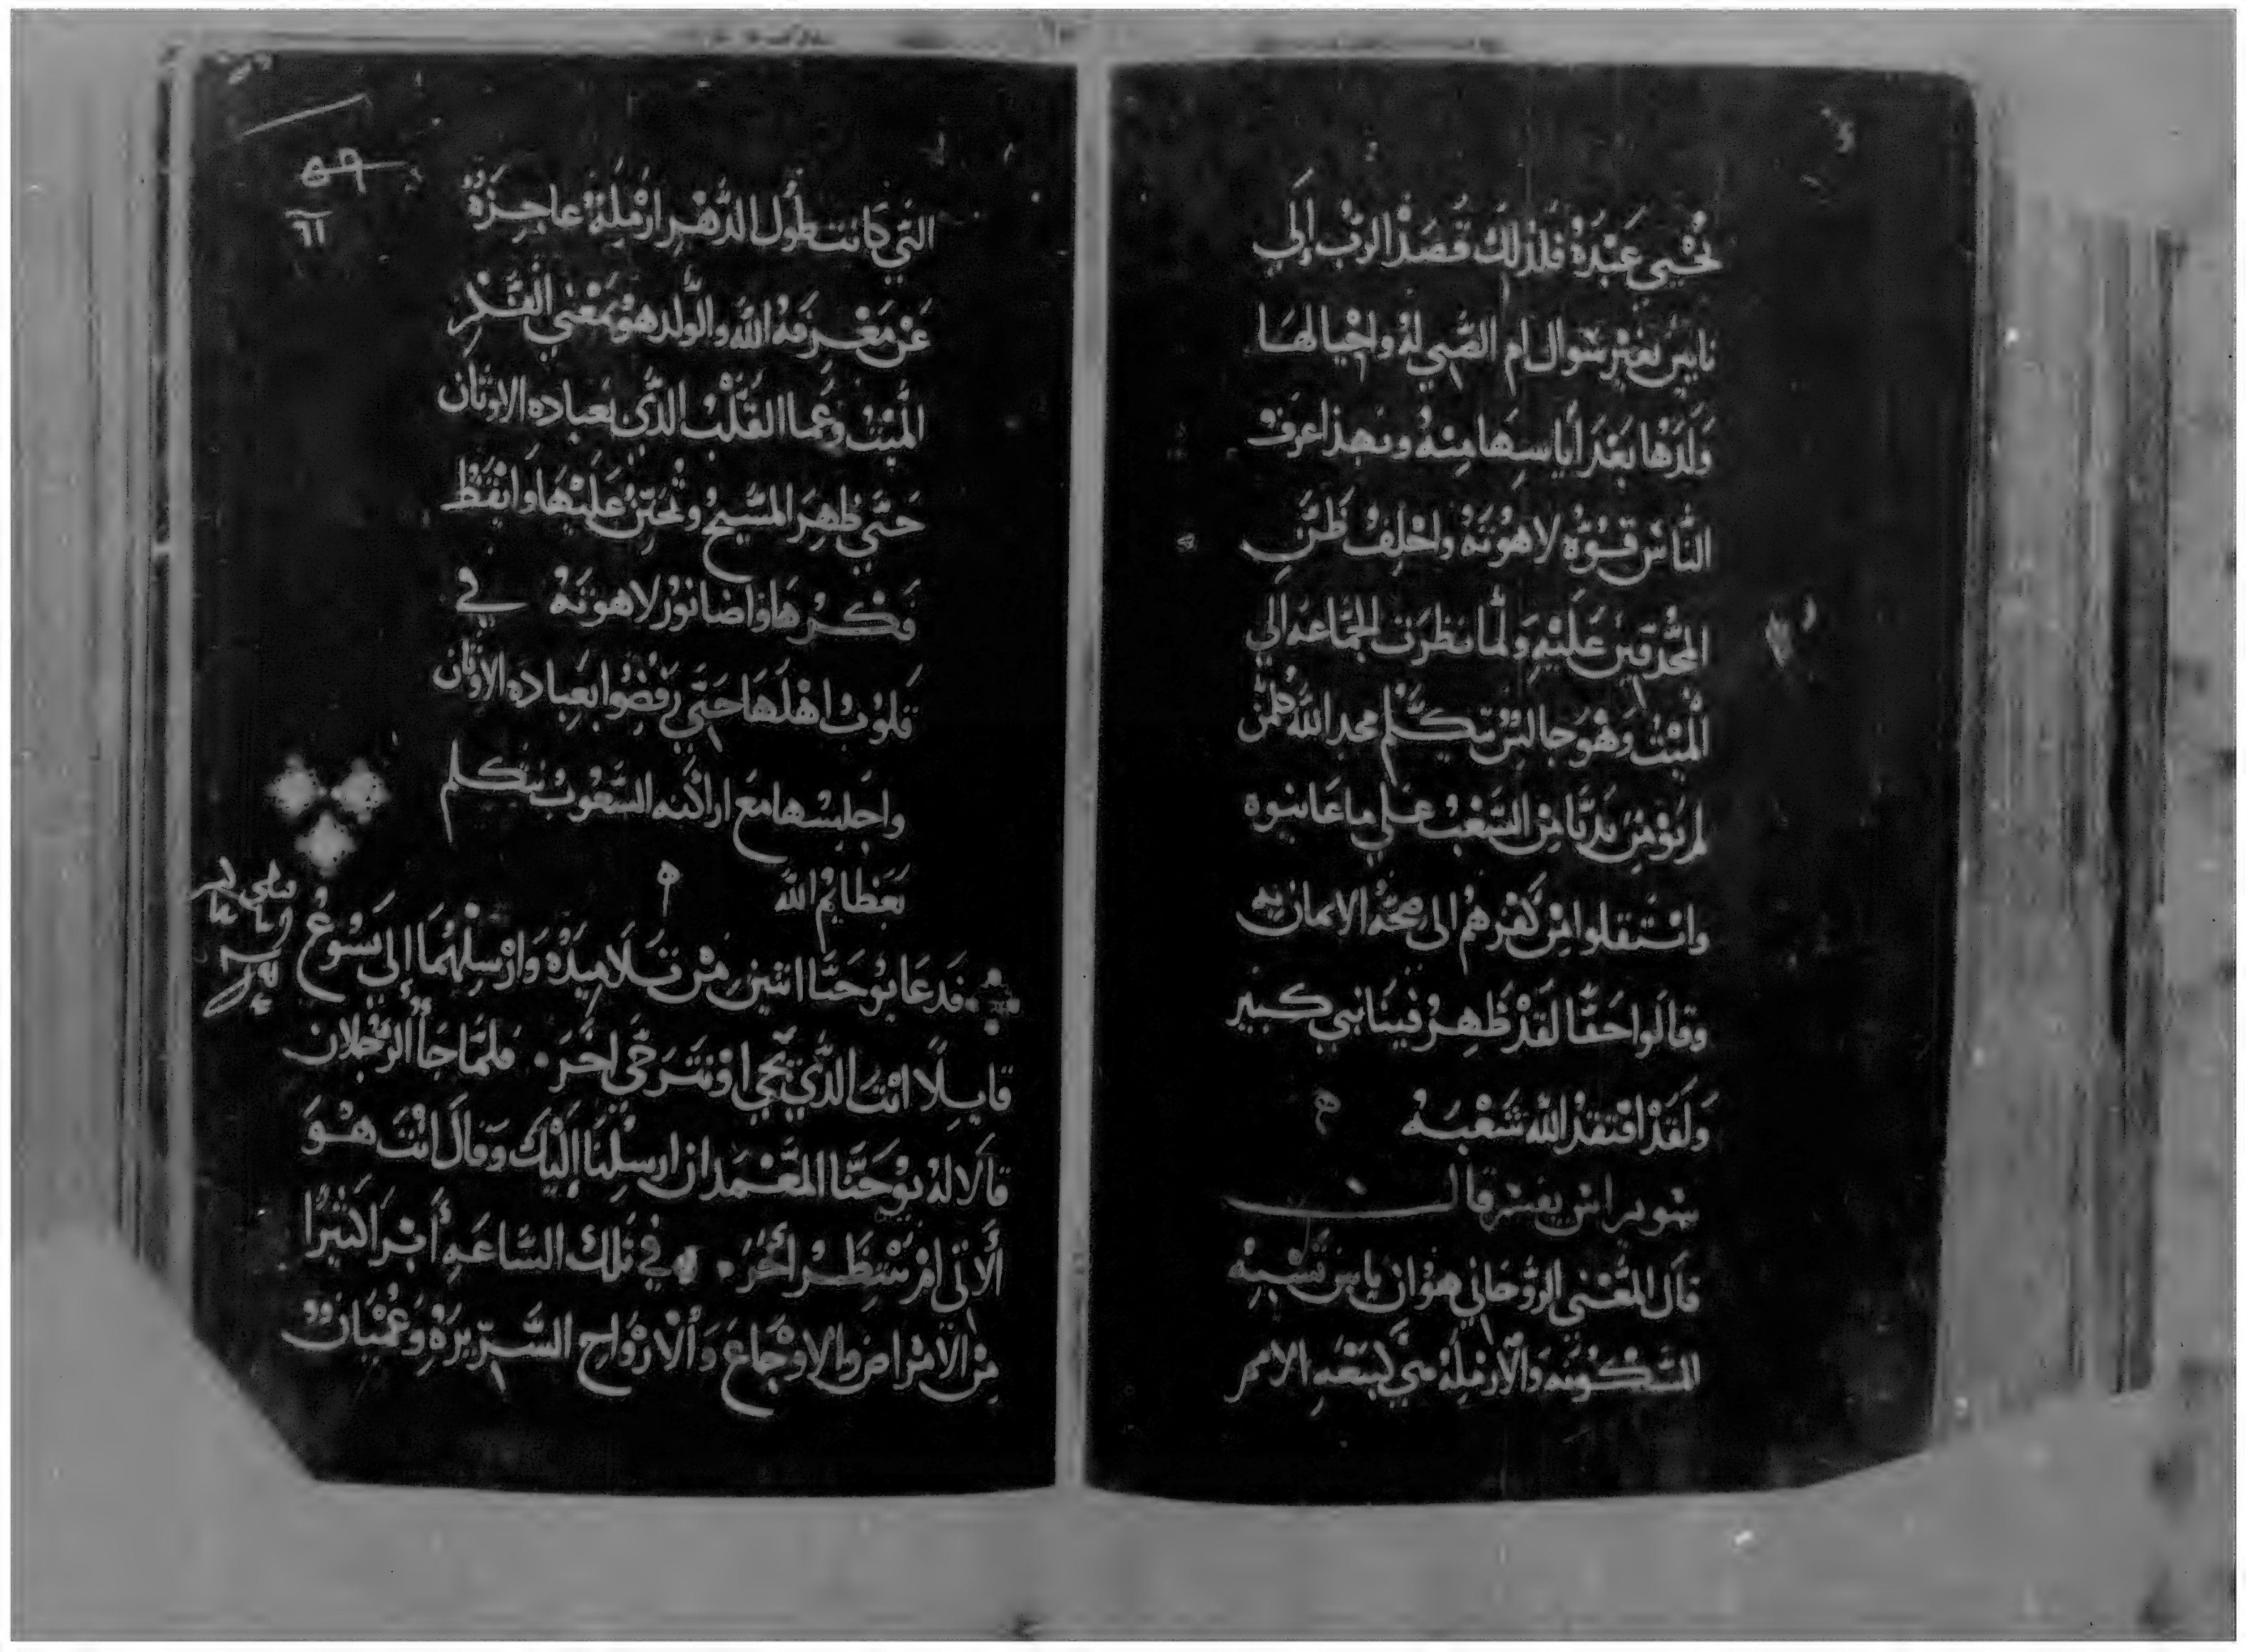 تحيي عبده فلذلك قصد الرب إلي
نايين بغير سوال ام الصبي له واحيا لها
ولدها بعد أياسها منه وبهذا عرف
الناس قوه لاهوته واخلف ظن
المحدقين عليه ولما نظرت الجماعه الي
الميت وهو جالس يتكلم مجد الله كلمن
لم يؤمن بديا من الشعب علي ما عاينوه
وانتقلوا من كفرهم الى صحة الايمان به
وقالوا حقا لقد ظهر فينا نبي كبير
ولقد افتقد الله شعبه
سويراس يفسر قال
قال المعني الروحاني هو ان نايين تشبه
المسكونه والارمله هي لبيعه الامم
٥٩
٦١
التي كانت طول الدهر ارمله عاجزة
عن معرفه الله والولد هو بمعني الفكر
الميت وعما القلب الذي بعباده الاوثان
حتي ظهر المسيح وتحنن عليها وايقظ
فكرها واضا نور لاهوته في
قلوب اهلها حتي رفضوا بعباده الاوثان
واجلسها مع اراكنه الشعوب تتكلم
بعظايم الله
فدعا يوحنا اثنين من تلاميده وارسلهما إلى يسوع
قايلا انت الذي تجي او نترجى اخر. فلما جا الرجلان
قالا له يوحنا المعمدان ارسلنا إليك وقال انت هو
الاتي ام ننتظر أخر. وفي تلك الساعه أبرا كثيرا
من الامراض والاوجاع والارواح الشريرة وعميان